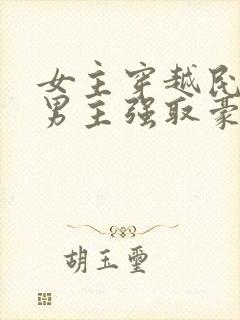 女主穿越民
男主强取豪
胡玉璽